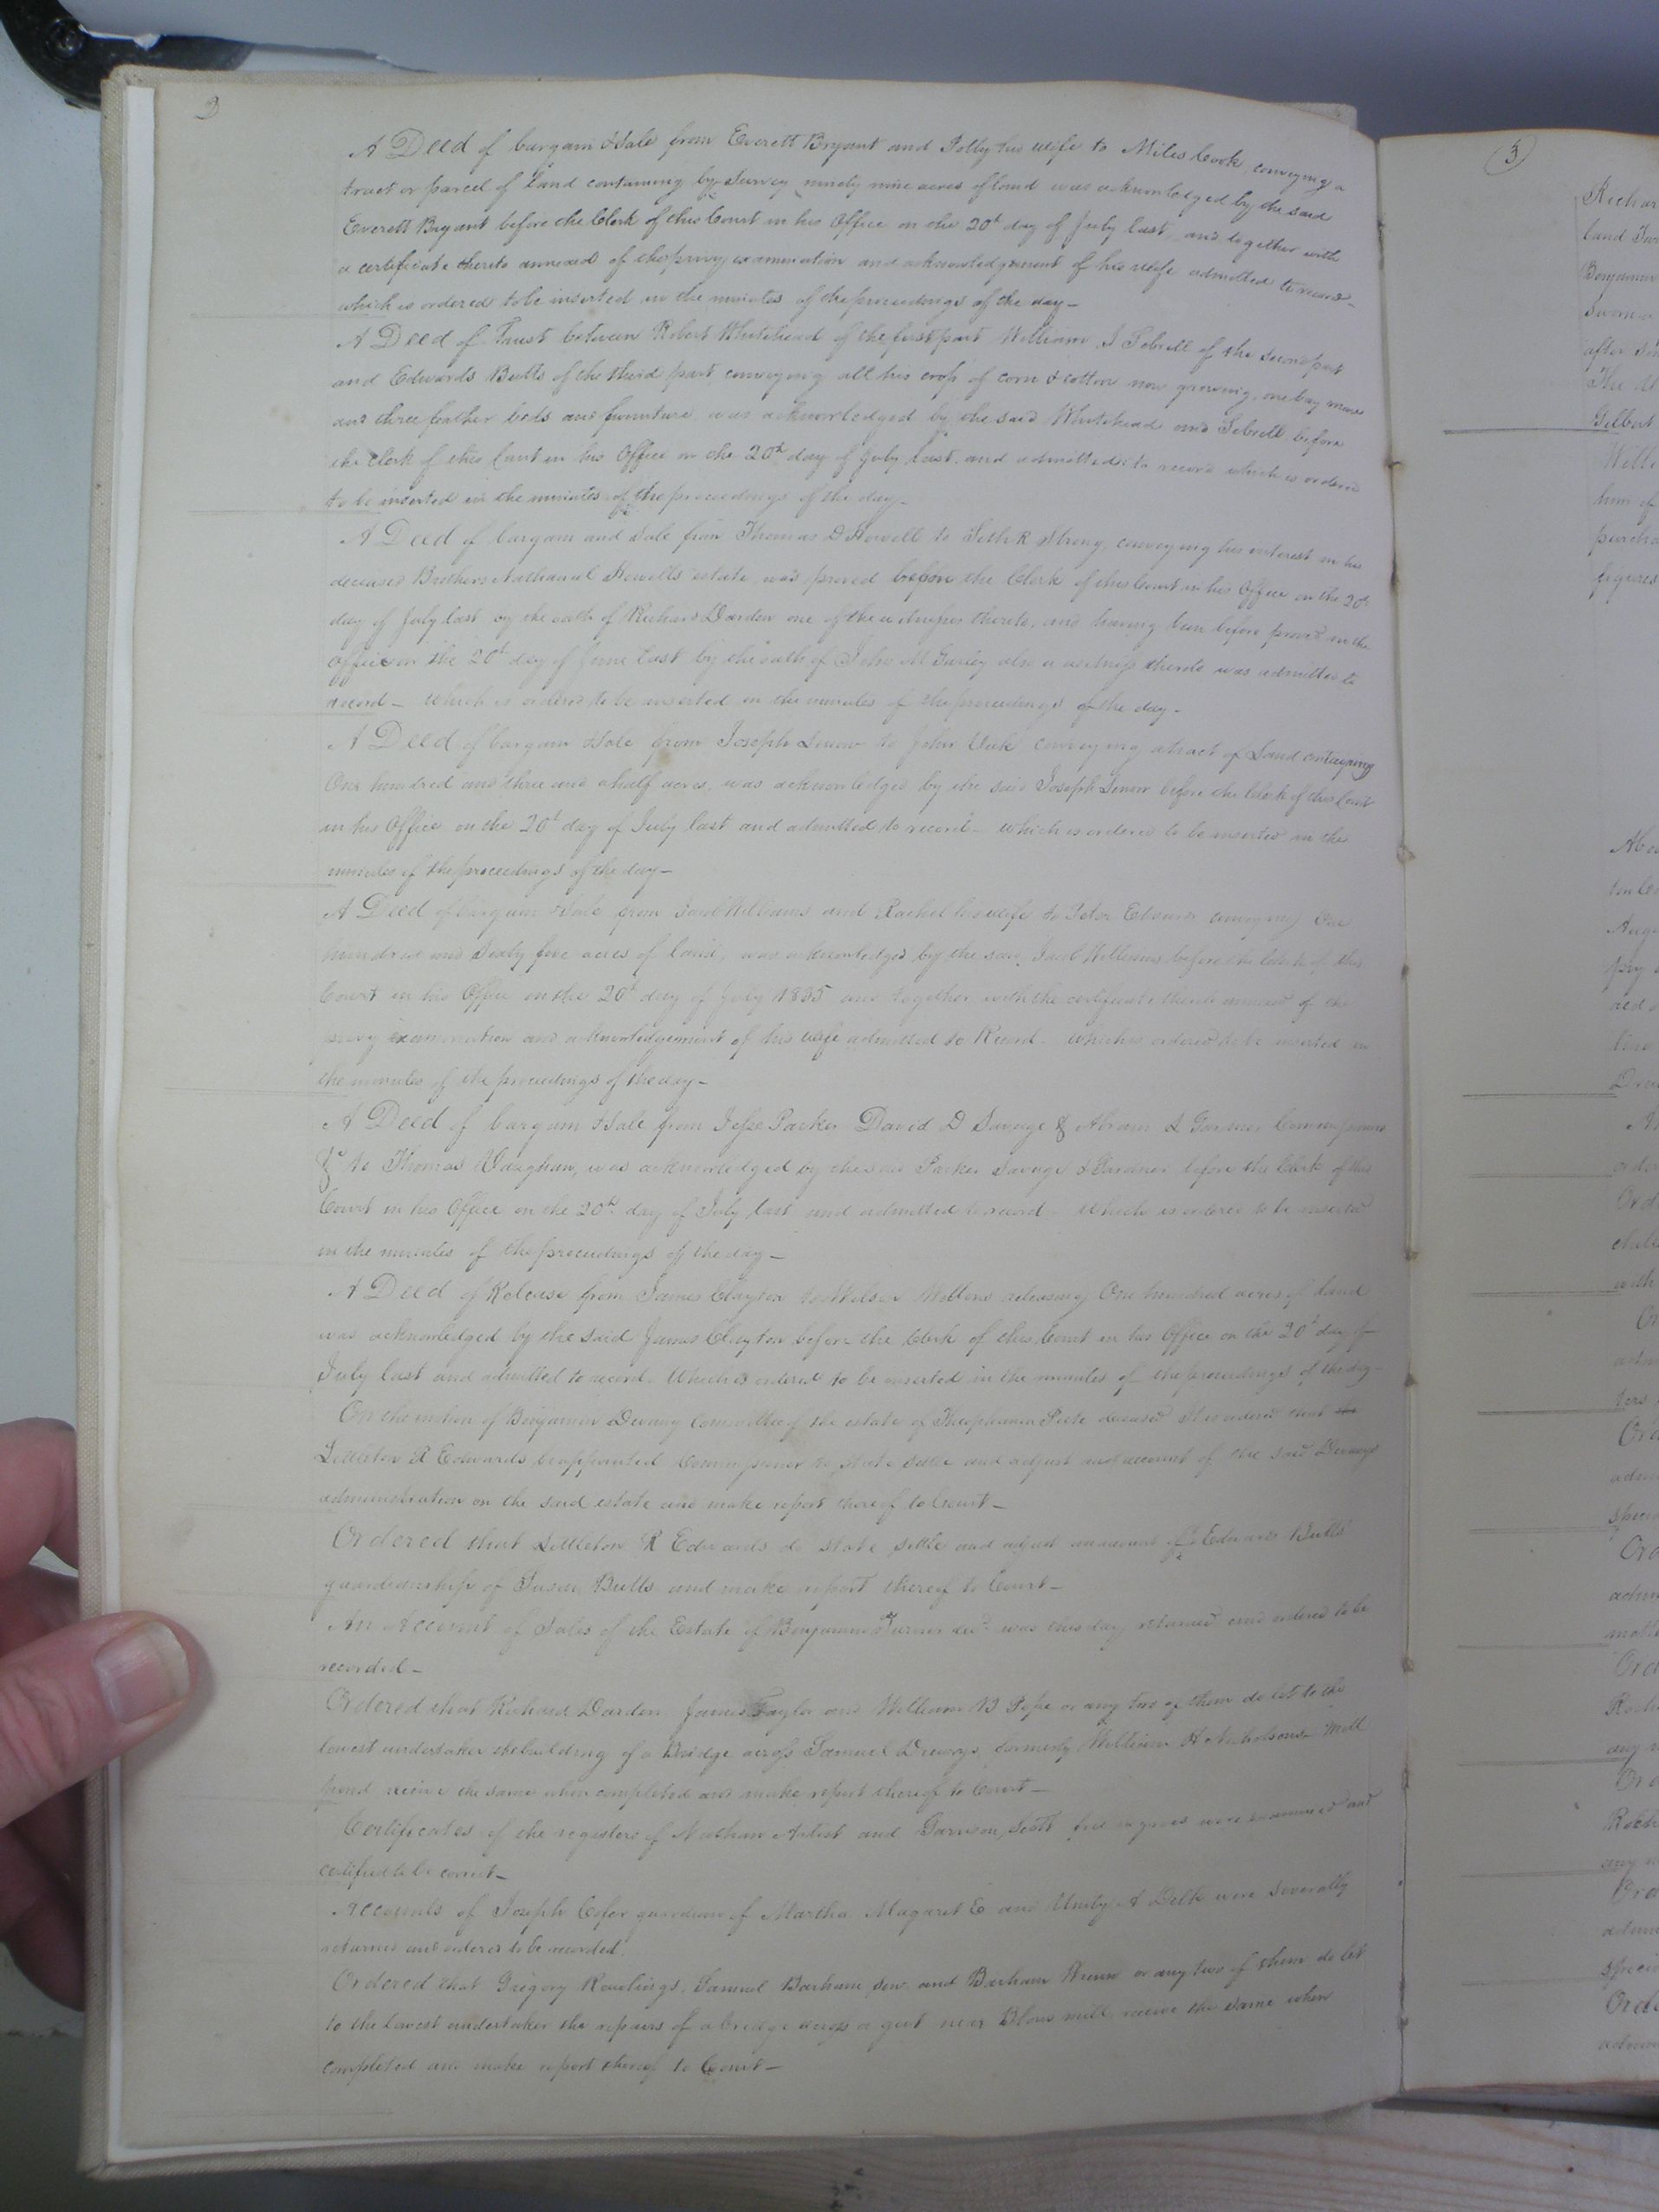 2
A Deed of bargain & Sale from Everett Bryant and Polly his wife to Miles Cook, conveying a
tract or parcel of land containing by Survey ninety nine acres of land was acknowledged by the said
Everett Bryant before the Clerk of this Court in his Office on the 20th day of July last and together with
a certificate thereto annexed of the privy examination and acknowledgment of his wife admitted to record -
which is ordered to be inserted in the minutes of the proceedings of the day -
A Deed of Trust between Robert Whitehead of the first part William J Sebrell of the second part
and Edwards Butts of the third part conveying all his crop of corn & cotton now growing, one bay mare
and three feather beds and furniture was acknowledged by the said Whitehead and Sebrell before
the Clerk of this Court in his Office on the 20th day of July last, and admitted to record which is ordered
to be inserted in the minutes of the proceedings of the day -
A Deed of bargain and Sale from Thomas D Howell to Seth R Strong, conveying his interest in his
deceased Brothers Nathaniel Howells estate was proved before the Clerk of this Court in his Office on the 20th
day of July last by the oath of Richard Darden one of the witnesses thereto, and having been before proved in the
Office on the 20th day of June last by the oath of John M Gurley also a witness thereto was admitted to
record - which is ordered to be inserted in the minutes of the proceedings of the day -
A Deed of bargain & Sale from Joseph Lenow to John Vick conveying a tract of Land containing
One hundred and three and a half acres, was acknowledged by the said Joseph Lenow before the Clerk of this Court
in his Office on the 20th day of July last and admitted to record - which is ordered to be inserted in the
minutes of the proceedings of the day -
A Deed of bargain & Sale from Jacob Williams and Rachel his wife to Peter conveying One
hundred and Sixty five acres of land, was acknowledged by the said Jacob Williams before the Clerk of this
Court in his Office on the 20th day of July 1835 and together with the certificate thereto annexed of the
privy examination and acknowledgement of his wife admitted to Record - which is ordered to be inserted in
the minutes of the proceedings of the day -
A Deed of bargain & Sale from Jesse Parker David D Savage & Abram L Gardner Commissioners
&c to Thomas Vaughan, was acknowledged by the said Parker Savage & Gardner before the Clerk of this
Court in his Office on the 20th day of July last and admitted to record - Which is ordered to be inserted
in the minutes of the proceedings of the day -
A Deed of Release from James Clayton to Wilson releasing One hundred acres of land
was acknowledged by the said James Clayton before the Clerk of this Court in his Office on the 20th day of
July last and admitted to record. Which is ordered to be inserted in the minutes of the proceedings of the day -
On the motion of Benjamin Devany Committee of the estate of deceased It is ordered that the
Littleton R Edwards be appointed Commissioner to state settle and adjust an account of the said Devanys
administration on the said estate and make report thereof to Court -
Ordered that Littleton R Edwards do state settle and adjust an account of Edwards Butts'
guardianship of Susan Butts and make report thereof to Court -
An Account of Sales of the Estate of Benjamin Turner decd. was this day returned and ordered to be
recorded -
Ordered that Richard Darden, James Taylor and William B Pope or any two of them do let to the
lowest undertaker the building of a Bridge across Samuel Drewrys, formerly William H Nicholsons Mill
pond receive the same when completed and make report thereof to Court -
Certificates of the registers of Nathan Artist and Garrison Scott free negroes were examined and
certified to be correct -
Accounts of Joseph Cofer guardian of Martha Magaret E and A Delk were severally
returned and ordered to be recorded.
Ordered that Gregory Rawlings, Samuel Barham senr. and Barham or any two of them do let
to the lowest undertaker the repairs of a bridge across a gut near Blows mill receive the same when
completed and make report thereof to Court -
3
Richar
land
Benjamin
after
Gilbert
him of
purcha
figures
Aug
Ord
Ord